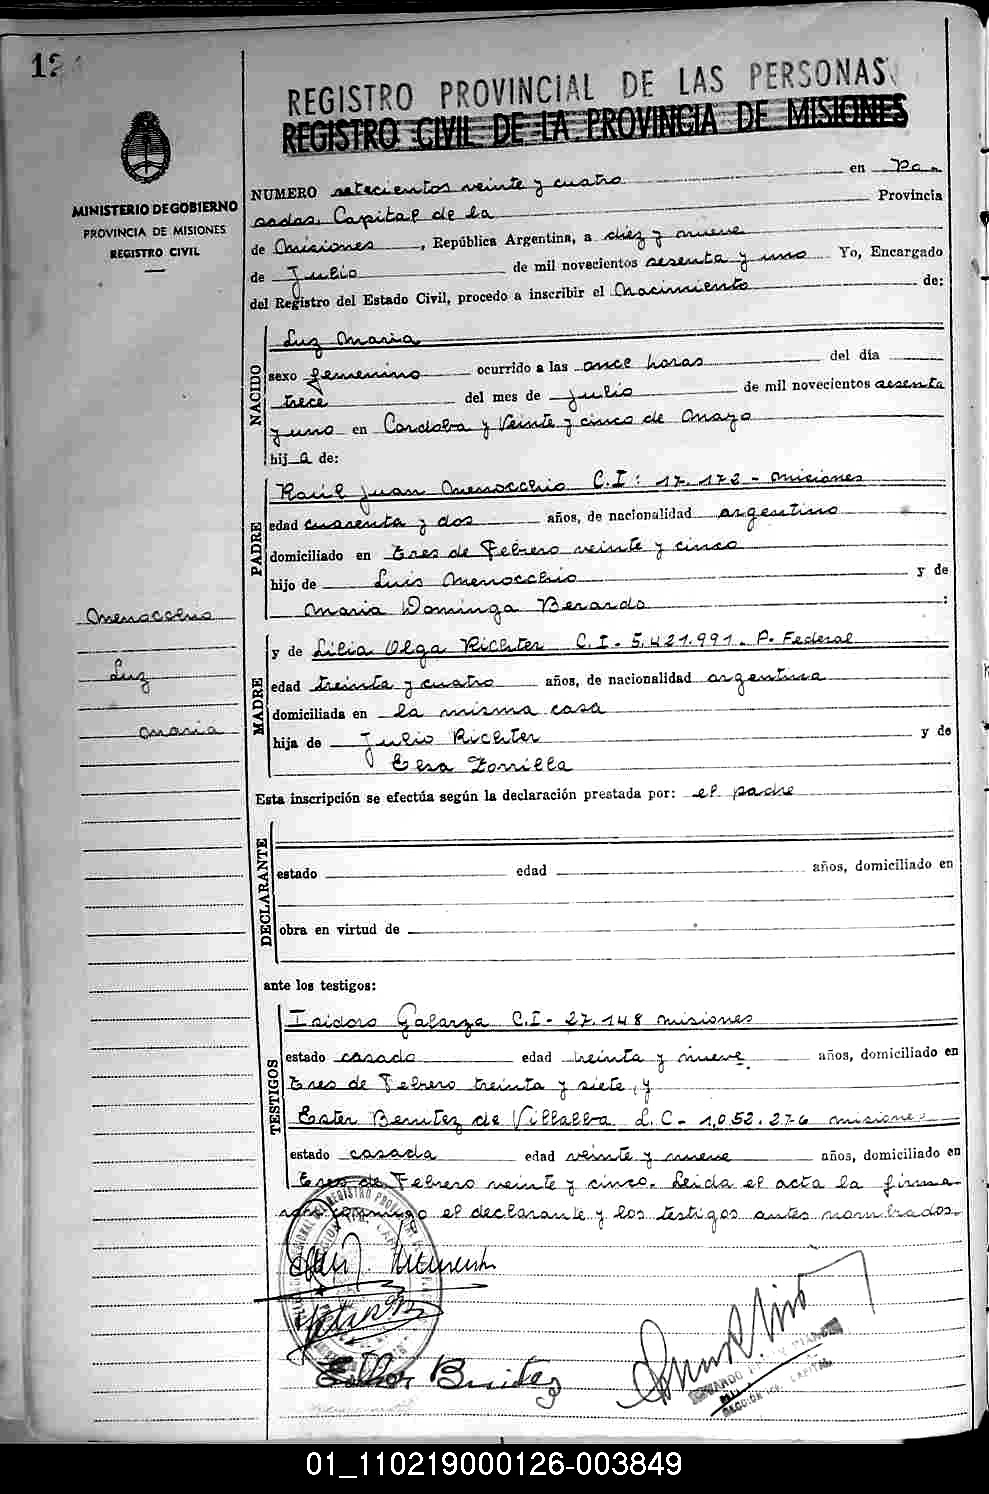 REGISTRO PROVINCIAL DE LAS PERSONAS
REGISTRO CIVIL DE LA PROVINCIA DE MISIONES
MINISTERIO DE GOBIERNO
PROVINCIA DE MISIONES
REGISTRO CIVIL
NUMERO setecientos veinte y cuatro en Po-
sadas, Capital de la Provincia
de Misiones, República Argentina, a diez y nueve
de Julio de mil novecientos sesenta y uno Yo, Encargado
del Registro del Estado Civil, procedo a inscribir el Nacimiento de:
NACIDO
Luz Maria
sexo femenino ocurrido a las once horas del día
trece del mes de julio de mil novecientos sesenta
y uno en Cordoba y Veinte y cinco de Mayo
hija de:
PADRE
Raúl Juan Menocchio C.I: 17.172 - Misiones
edad cuarenta y dos años, de nacionalidad argentino
domiciliado en Tres de Febrero veinte y cinco
hijo de Luis Menocchio y de
Maria Dominga Berardo :
Menocchio
Luz
Maria
MADRE
y de Lilia Olga Richter C.I - 5.421.991 - P. Federal
edad treinta y cuatro años, de nacionalidad argentina
domiciliada en la misma casa
hija de Julio Richter y de
Elsa Zorrilla
Esta inscripción se efectúa según la declaración prestada por: el padre
DECLARANTE
estado edad años, domiciliado en
obra en virtud de
ante los testigos:
TESTIGOS
Isidoro Galarza C.I - 27.148 misiones
estado casado edad treinta y nueve años, domiciliado en
Tres de Febrero treinta y siete, y
Ester Benitez de Villalba L.C - 1,052.276 misiones
estado casada edad veinte y nueve años, domiciliado en
Tres de Febrero veinte y cinco. Leida el acta la firma
conmigo el declarante y los testigos antes nombrados.
Esther Benitez
01_110219000126-003849